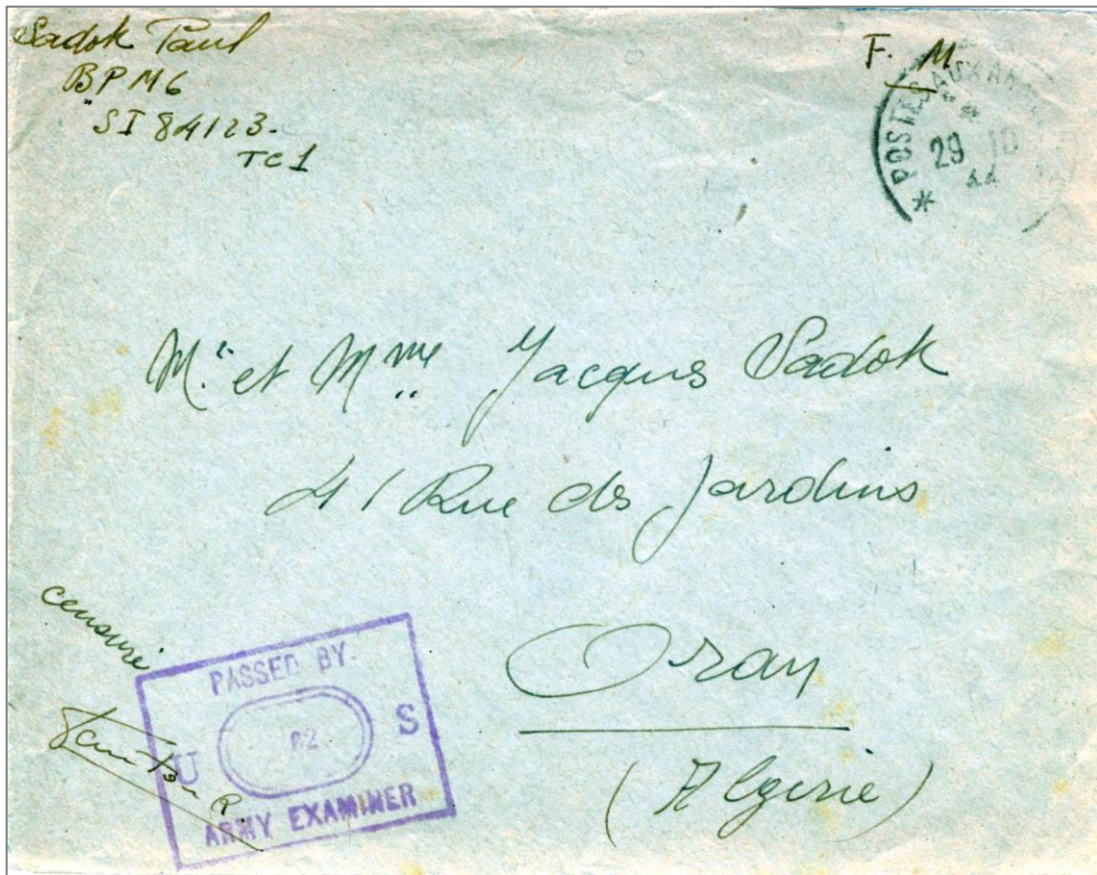 Sadok Paul
BPM6
"SI 84123-
TC1
F. M.
* POSTES AUX AR
29 10
44
M.r et Mme Jacques Sadok
41 Rue des Jardins
Oran
(Algérie)
censuré
PASSED BY
U S
ARMY EXAMINER